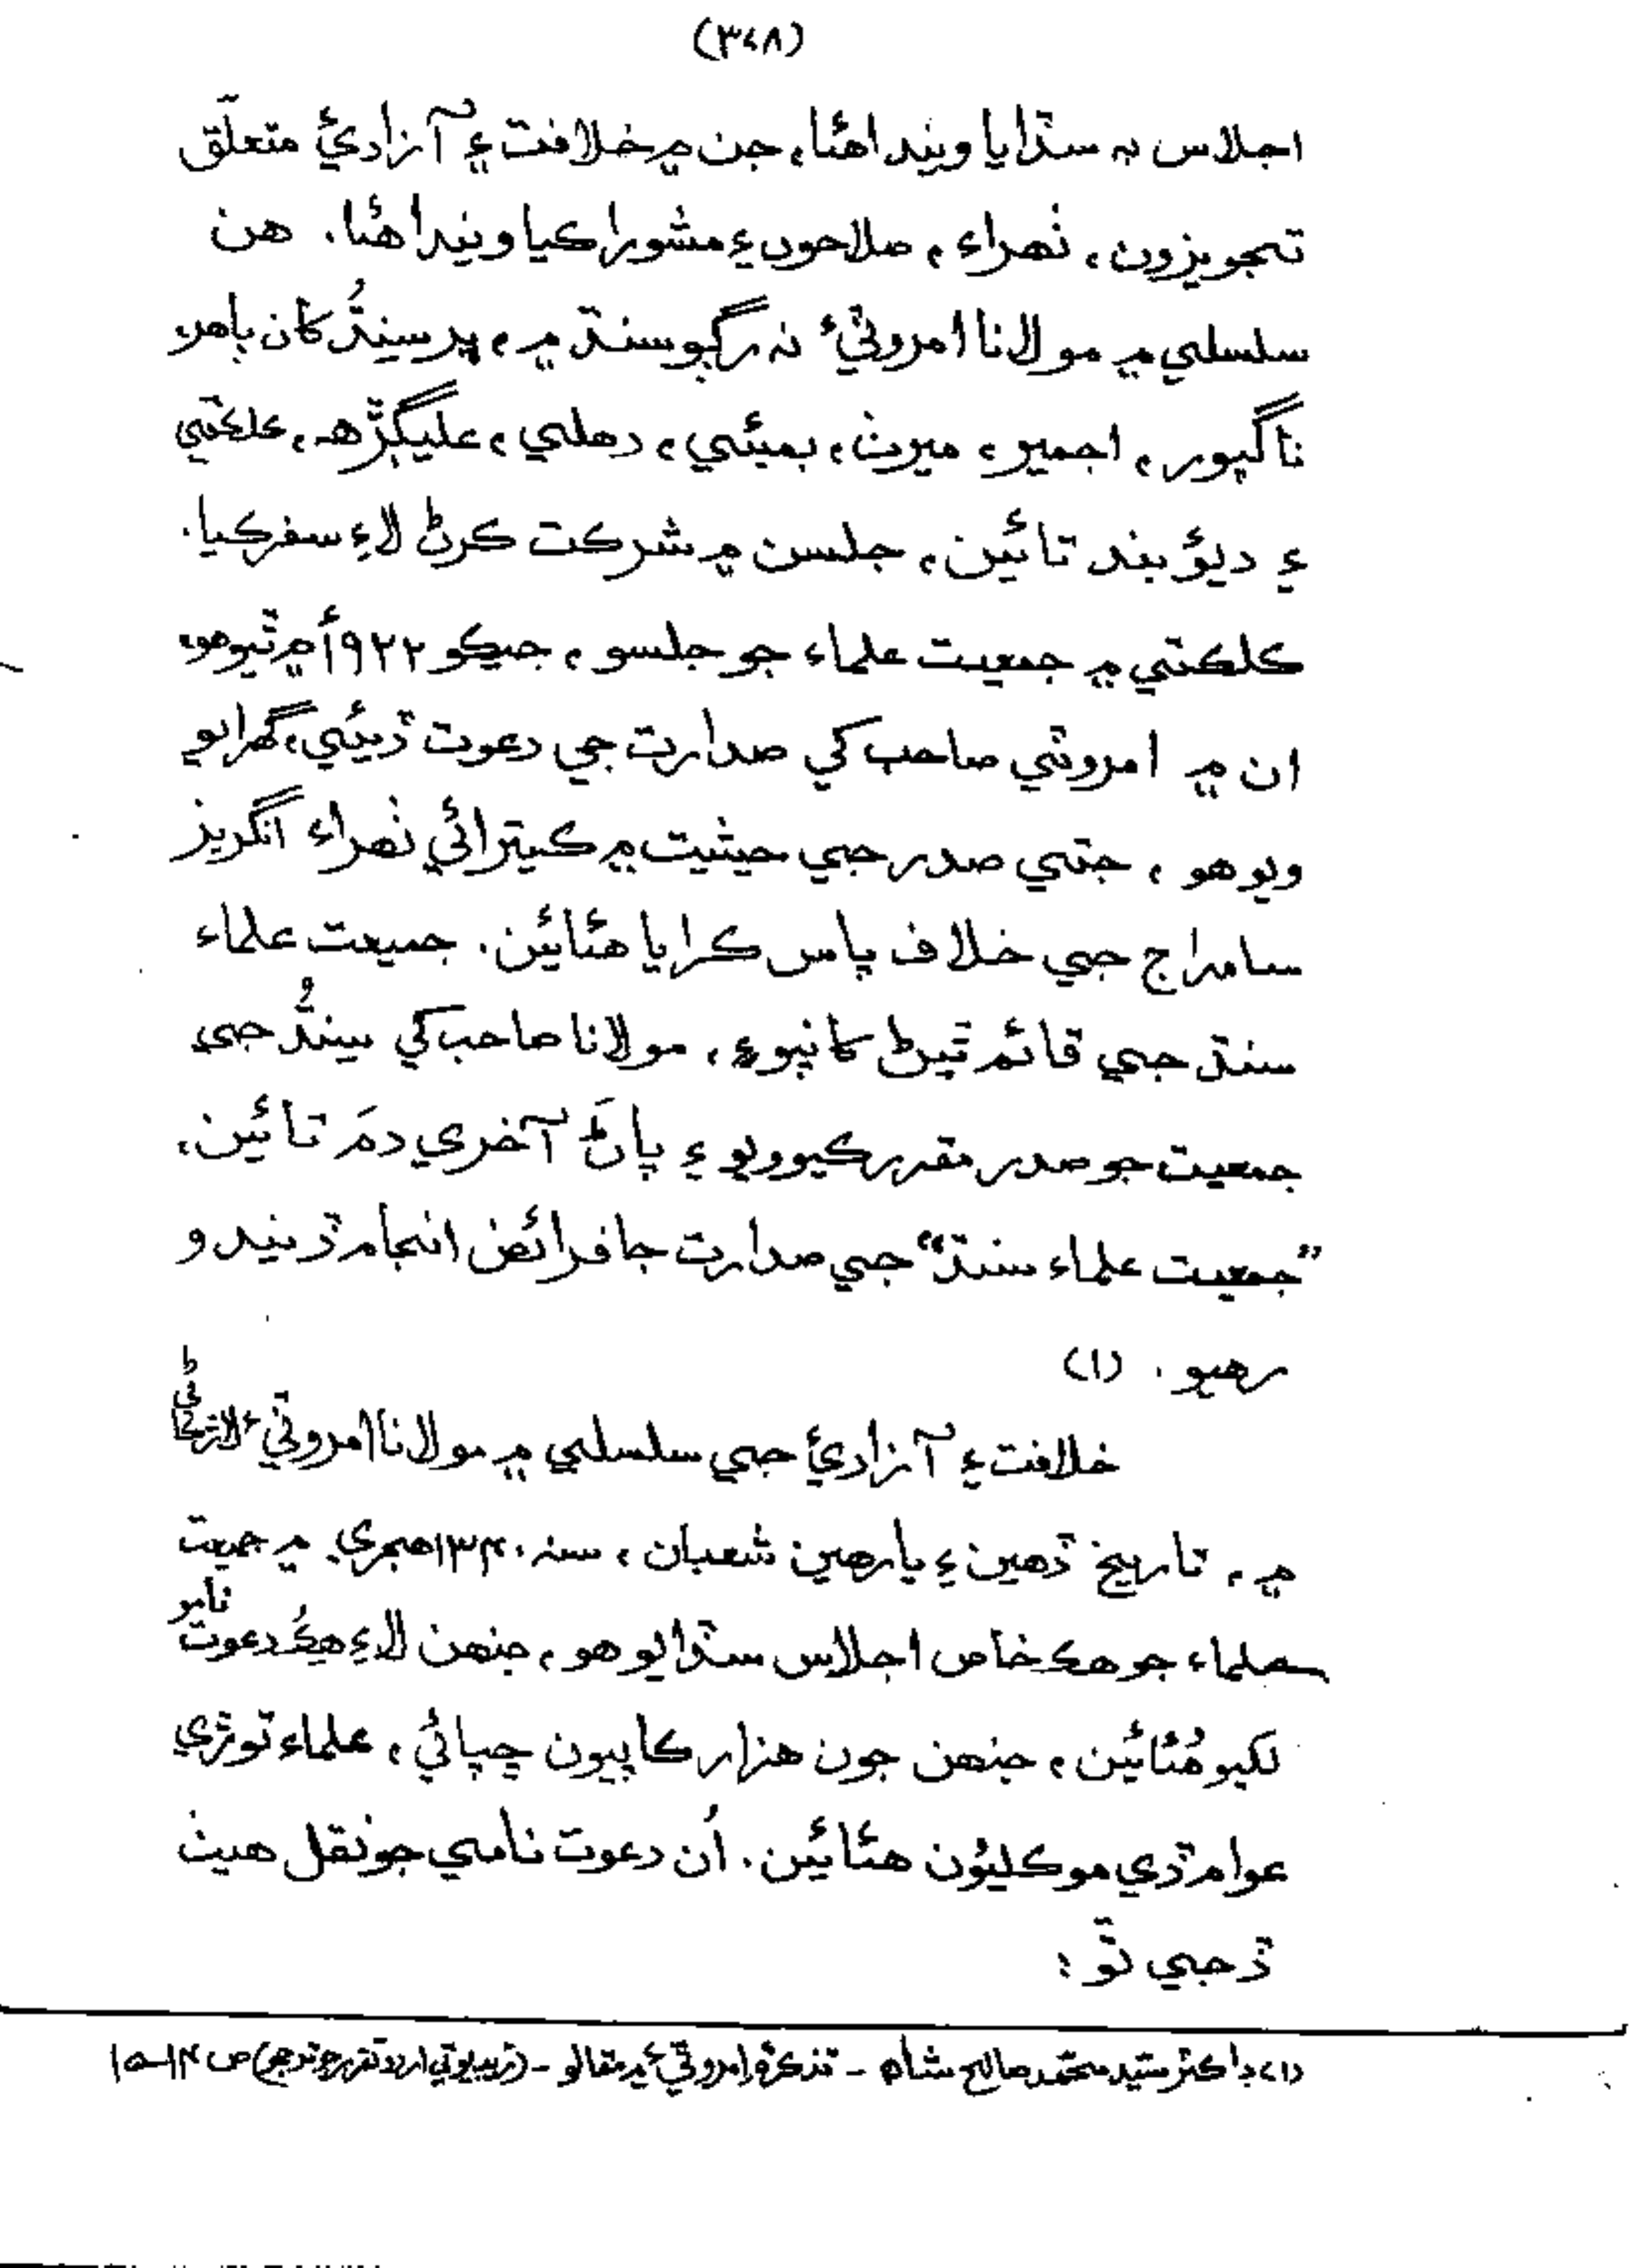 (٣٤٨)
اجلاس به سڏايا ويندا هئا، جن ۾ خلافت ۽ آزاديءَ متعلّق
تجويزون، ٺهراء، صلاحون ۽ مشورا ڪيا ويندا هئا. هن
سلسلي ۾ مولانا امروٽيءَ نه رڳو سنڌ ۾، پر سِنڌُ کان ٻاهر
ناگپور، اجمير، ميرٺ، بمبئي، دهلي، عليڳڙهه، ڪلڪتي
۽ ديوبند تائين، جلسن ۾ شرڪت ڪرڻ لاءِ سفر ڪيا.
ڪلڪتي ۾ جمعيت علماء جو جلسو، جيڪو ١٩٢٢ع ۾ ٿيو هو،
ان ۾ امروٽي صاحب کي صدارت جي دعوت ڏيئي، گهرايو
ويو هو، جتي صدر جي حيثيت ۾ ڪيترائي ٺهراء انگريز
سامراج جي خلاف پاس ڪرايا هئائين. جميعت علماء
سنڌ جي قائم ٿيڻ کانپوءِ، مولانا صاحب کي سِنڌُ جي
جمعيت جو صدر مقرر ڪيو ويو ۽ پاڻَ آخري دمَ تائين،
”جمعيت علماء سنڌ“ جي صدارت جا فرائض انجام ڏيندو
رهيو. (١)
خلافت ۽ آزاديءَ جي سلسلي ۾ مولانا امروٽيءَ لاڙڪاڻي
۾، تاريخ ڏهين ۽ يارهين شعبان، سنه ١٣٤٠هجري ۾ جميعت
علماء جو هڪ خاص اجلاس سڏايو هو، جنهن لاءِ هڪُ دعوت نامو
لکيو هُئائين، جنهن جون هزار ڪاپيون ڇپائي، علماء توڙي
عوام ڏي موڪليون هئائين. اُن دعوت نامي جو نقل هيٺ
ڏجي ٿو:
(١) ڊاڪٽر سيّد محمّد صالح شاه - تذڪرهٔ امروٽيءَ ۾ مقالو - (ريڊيوئي اردو تقرير جو ترجمو) ص ١٤-١٥